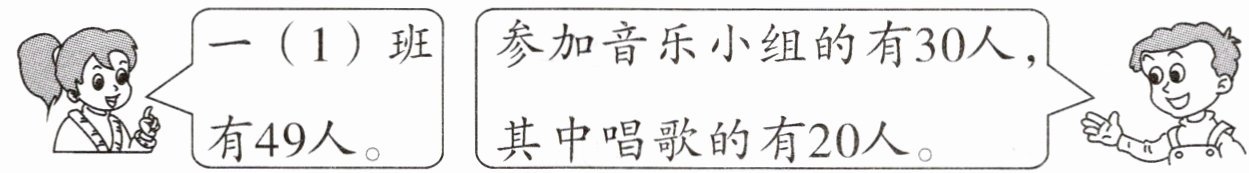 一（1）班
有49人。
参加音乐小组的有30人，
其中唱歌的有20人。